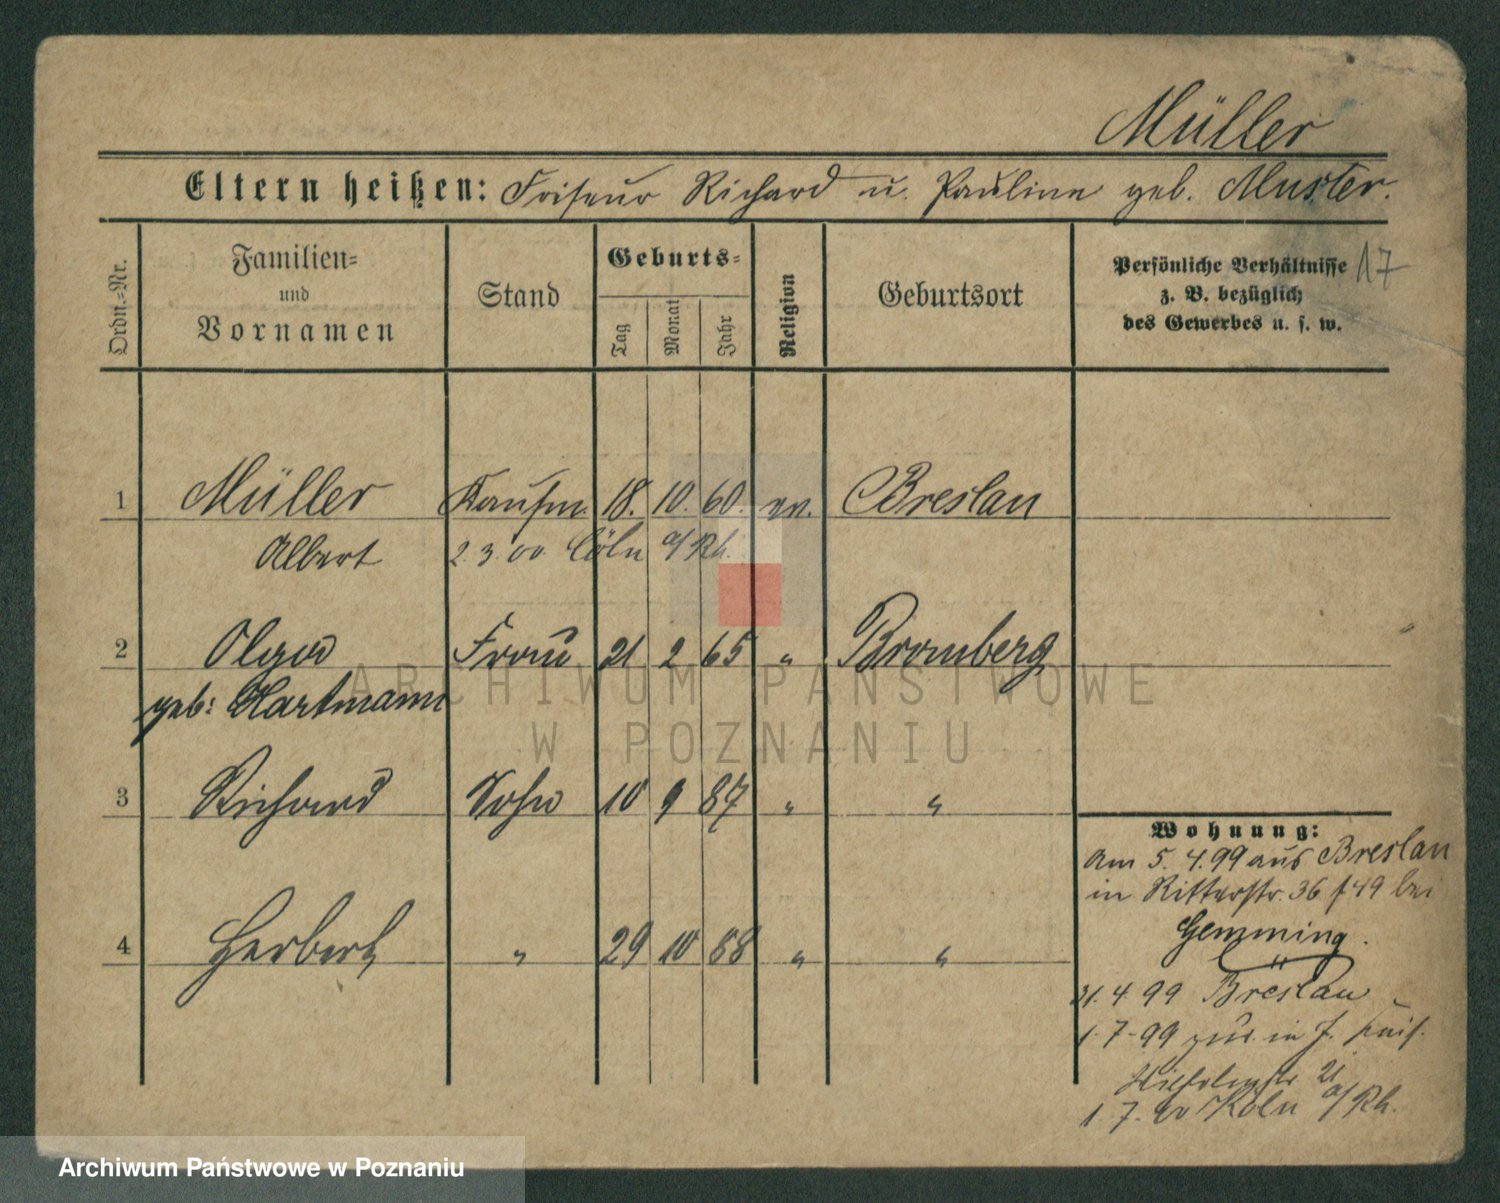 Müller
Eltern heißen: Friseur Richard u. Pauline geb. Muster.
Ordn.-Nr. Familien- und Vornamen Stand Geburts- Tag Monat Jahr Religion Geburtsort Persönliche Verhältnisse z. B. bezüglich des Gewerbes u. s. w. 17
1 Müller Kaufm. 18. 10. 60. ev. Breslau
Albert 2. 3. 00 Cöln a/Rh.
2 Olga Frau 21 2 65 " Bromberg
geb: Hartmann
ARCHIWUM PAŃSTWOWE
W POZNANIU
3 Richard Sohn 10 9 87 " "
4 Herbert " 29 10 88 " "
Wohnung:
Am 5. 4. 99 aus Breslau
in Ritterstr. 36 f 49 bei
Gemming.
4. 99 Breslau
1. 7. 99 zur. in J.
21
1. 7. 00 Köln a/Rh.
Archiwum Państwowe w Poznaniu